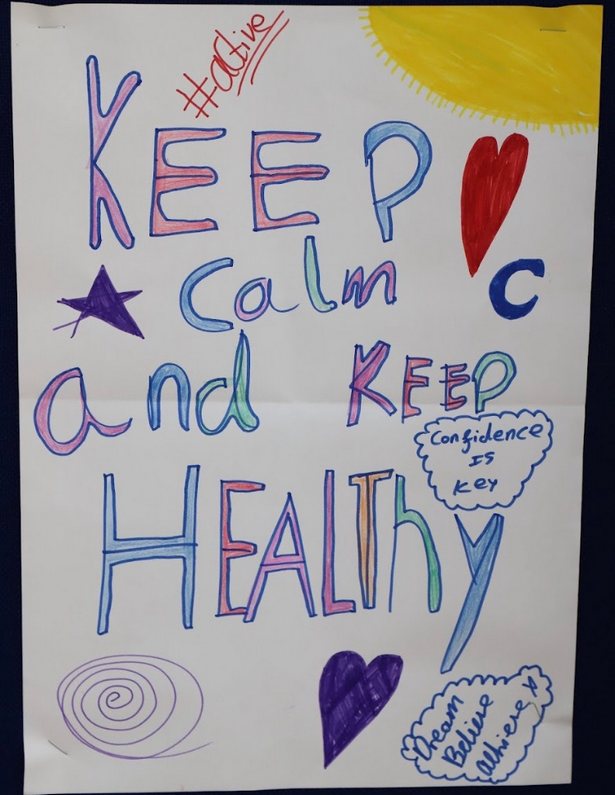 #active
KEEP
Calm
and KEEP
Confidence
IS
Key
HEALThy
Dream
Believe
Achieve x